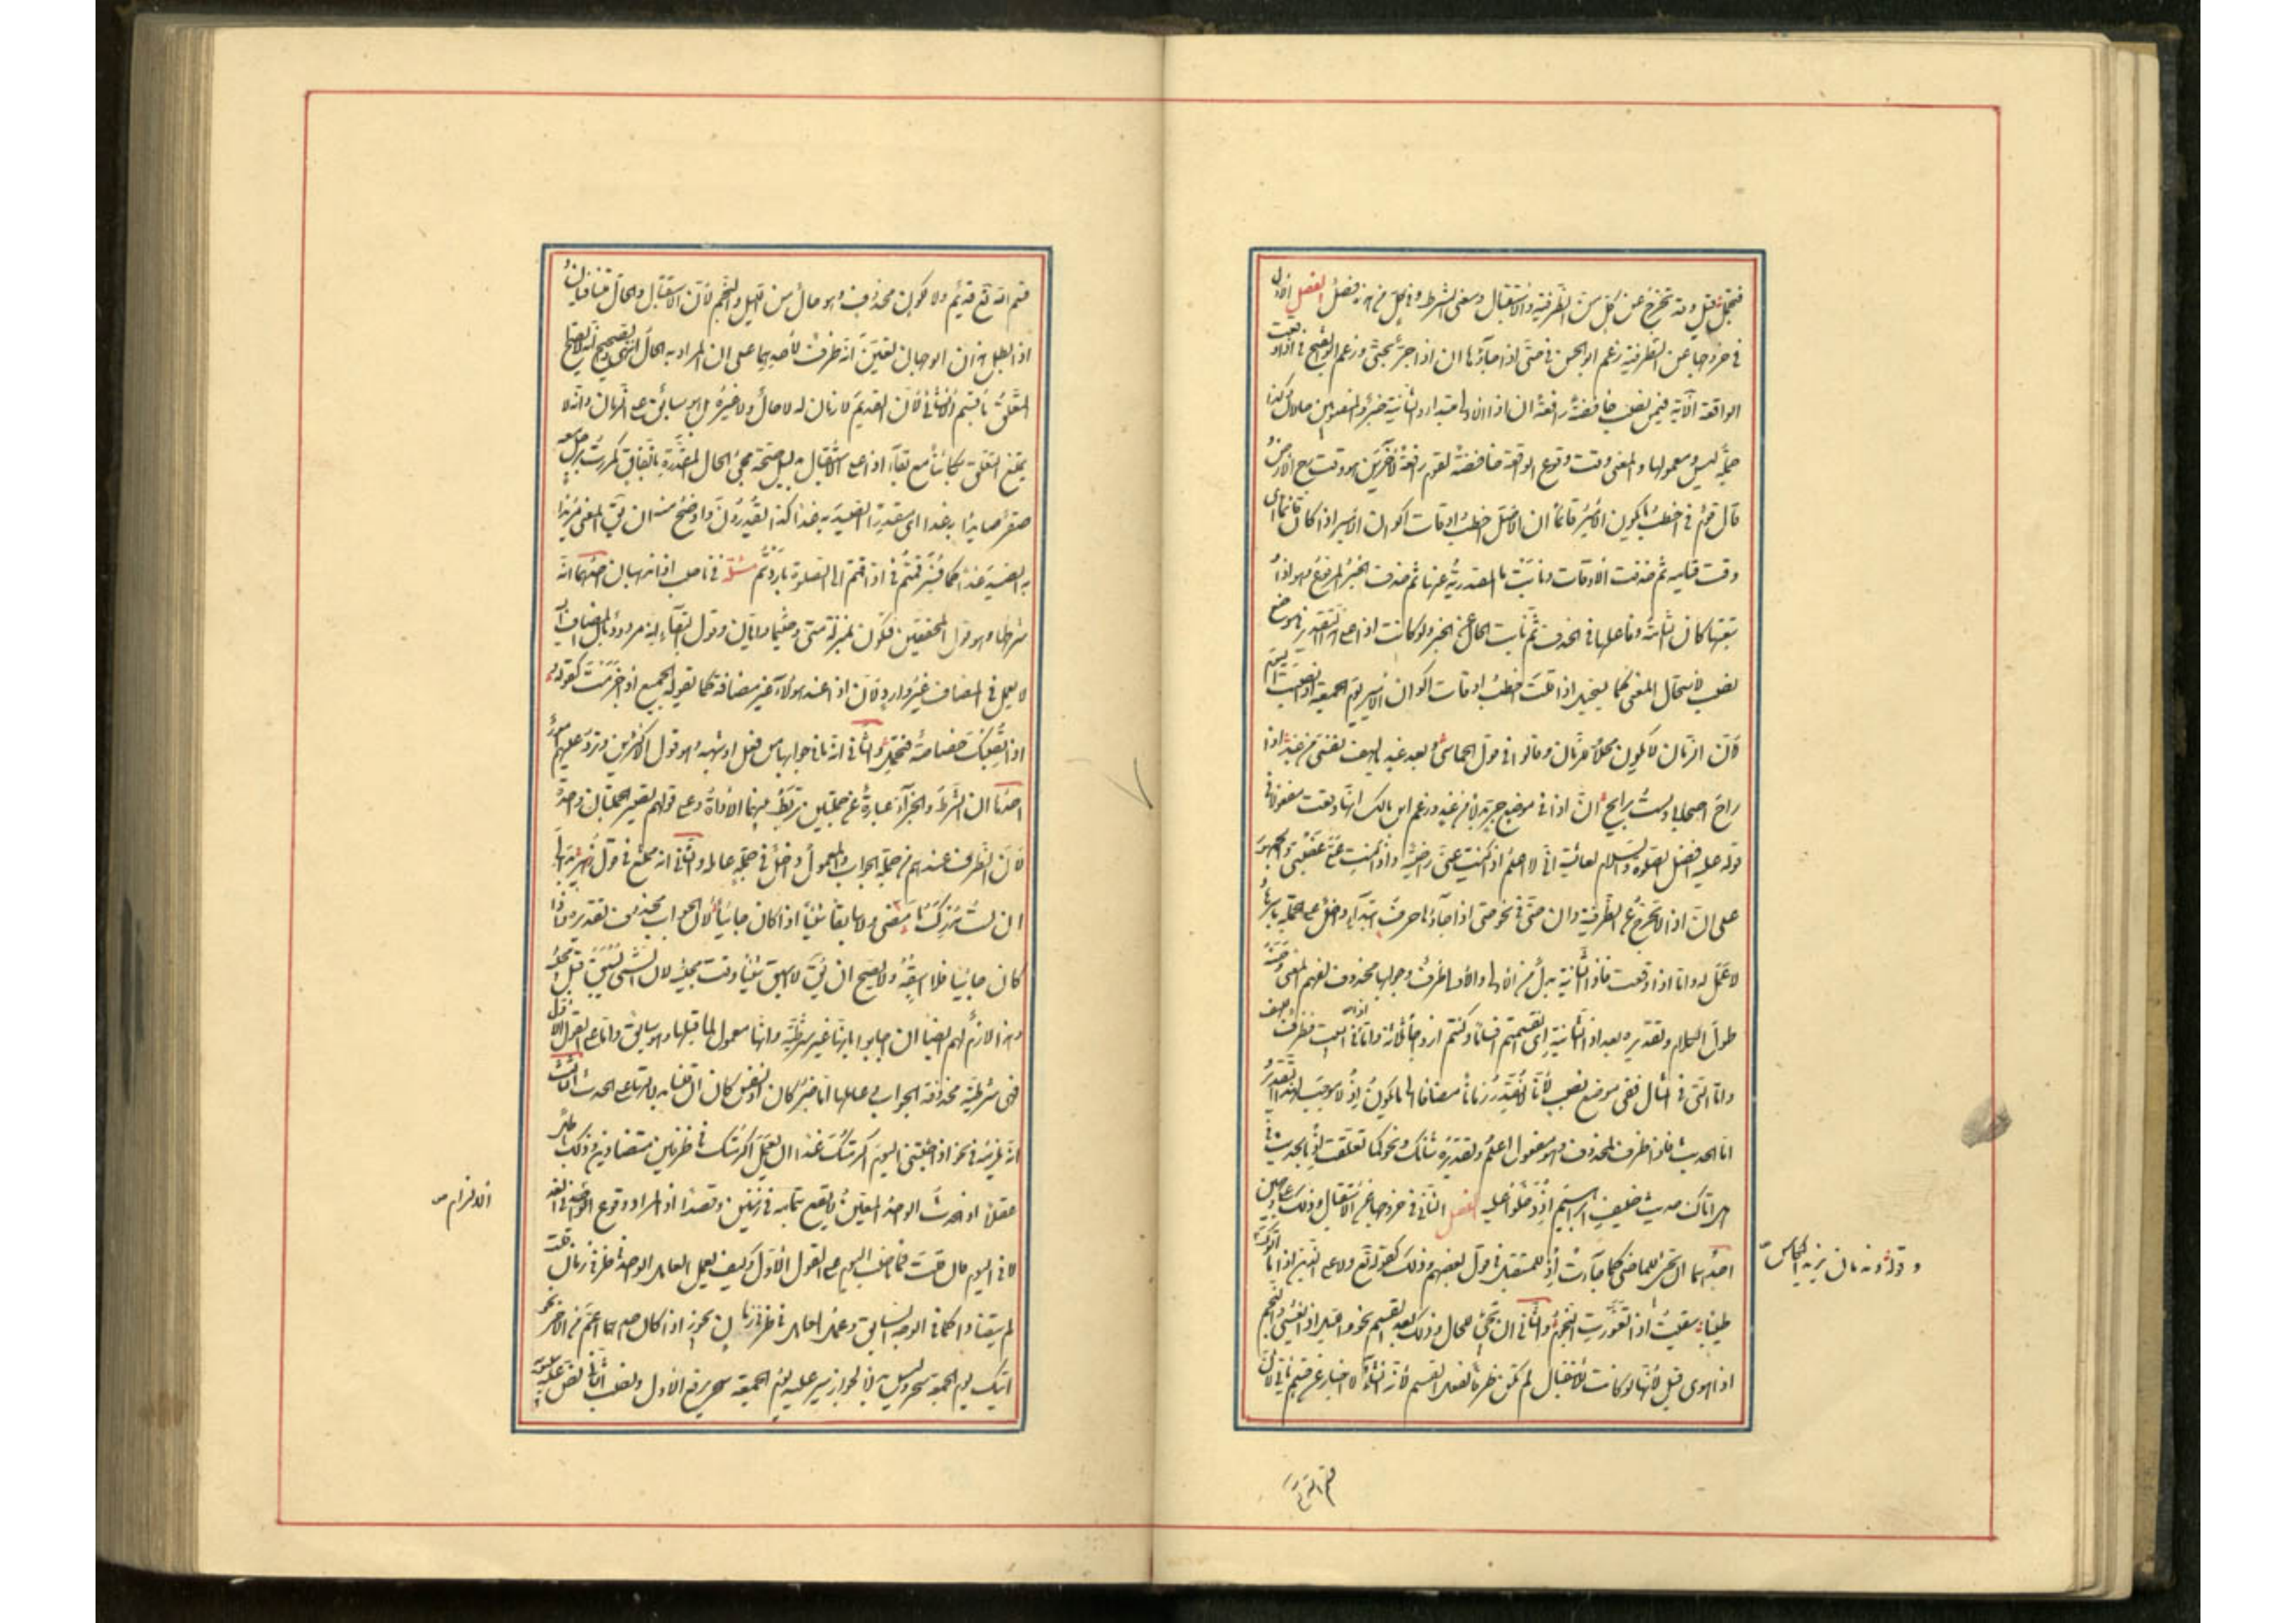 فتجمل قيل وقد تخرج عن كل من الظرفية والاستقبال ومعنى الشرط وفي كل من هذه فصل الفصل الاول
في خروجها عن الظرفية زعم ابو الحسن في حتى اذا جاؤها ان اذا جر بحتى وزعم ابو الفتح في اذا وقعت
الواقعة الآية فيمن نصب خافضة رافعة ان اذا الاولى مبتداء والثانية خبر والمنصوبين حالان وكذا
جملة ليس ومعمولها والمعنى وقت وقوع الواقعة خافضة لقوم رافعة لآخرين هو وقت رج الارض و
قال قوم في اخطب ما يكون الامير قائماً ان الاصل اخطب اوقات اكوان الامير اذا كان قائما اى
وقت قيامه ثم حذفت الاوقات ونابت ما المصدرية عنها ثم حذف الخبر المرفوع وهو اذا و
تبعتها كان التامة وفاعلها في الحذف ثم نابت الحال عن الخبر ولو كانت اذا على هذا التقدير في موضع
نصب لاستحال المعنى كما يستحيل اذا قلت اخطب اوقات اكوان الامير يوم الجمعة اذا نصبت اليوم
لان الزمان لا يكون محلاً للزمان وقالوا في قول الحماسي وبعد غد يا لهف نفسي من غد اذا
راح اصحابي ولست برايح ان اذا في موضع جر بدلا من غد وزعم ابن مالك انها وقعت مفعولا في
قوله عليه افضل الصلوة والسلام لعائشة اني لاعلم اذا كنت عنى راضية واذا كنت على غضبى والجمهور
على ان اذا لا تخرج عن الظرفية وان حتى في نحو حتى اذا جاؤها حرف ابتداء دخل على الجملة باسرها و
لا عمل له واما اذا وقعت فاذا الثانية بدل من الاولى والاولى ظرف وجوابها محذوف لفهم المعنى وحسنه
طول الكلام وتقديره بعد اذا الثانية اى انقسمتم اقساماً وكنتم ازواجا ثلاثة واما اذا في البيت فظرف لهف
واما التى في المثال ففي موضع نصب لانا لا نقدر زماناً مضافا الى ما يكون اذ لا موجب لهذا التقدير و
اما الحديث فاذا ظرف لمحذوف وهو مفعول اعلم وتقديره شأنك ونحو كما تعلقت اذ بالحديث في
هل اتاك حديث ضيف ابراهيم اذ دخلوا عليه الفصل الثاني في خروجها عن الاستقبال وذلك على وجهين
احدهما ان تجئ للماضي كما جاءت اذ للمستقبل في قول بعضهم وذلك كقوله تع ولا على الذين اذا ما اتوك
وقوله وندمان يزيد الكاس
طيبا سقيت اذا تغورت النجوم والثاني ان تجئ للحال وذلك بعد القسم نحو والليل اذا يغشى والنجم
اذا هوى قيل لانها لو كانت للاستقبال لم تكن ظرفا لفعل القسم لانه انشاء لا اخبار عن قسم يأتي لان
قسم الله تع قديم ولا لكون محذوف هو حال من الليل والنجم لان الاستقبال والحال متنافيان و
اذا بطل هذان الوجهان تعين انه ظرف لاحدهما على ان المراد به الحال انتهى والصحيح انه لا يصح
التعلق باقسم الانشائي لان القديم لا زمان له لا حال ولا غيره بل هو سابق على الزمان وانه لا
يمتنع التعلق بكائناً مع بقاء اذا على الاستقبال بدليل صحة مجئ الحال المقدرة باتفاق كمررت برجل معه
صقر صائدا به غدا اى مقدرا الصيد به غدا كذا يقدرون واوضح منه ان يق المعنى مريدا
به الصيد غدا كما فسر قمتم في اذا قمتم الى الصلوة باردتم مسئلة في ناصب اذا مذهبان احدهما انه
شرطها وهو قول المحققين فتكون بمنزلة متى وحيثما وايان وقول ابي البقاء انه مردود بان المضاف اليه
لا يعمل في المضاف غير وارد لان اذا عند هؤلاء غير مضافة كما يقوله الجميع اذا جزمت كقوله و
اذا تصبك خصاصة فتحمل والثاني انه ما في جوابها من فعل او شبهه وهو قول الاكثرين وترد عليهم امور
احدها ان الشرط والجزاء عبارة عن جملتين تربط بينهما الاداة وعلى قولهم تصير الجملتان واحدة
لان الظرف عندهم من جملة الجواب والمعمول داخل في جملة عامله والثاني انه ممتنع في قول زهير بدا لي
اني لست مدرك ما مضى ولا سابقا شيئاً اذا كان جائيا لان الجواب محذوف تقديره اذا
كان جائيا فلا اسبقه ولا يصح ان يق لا اسبق شيئا وقت مجيئه لان الشئ انما يسبق قبل مجيئه
وهذا لازم لهم ايضا ان اجابوا بانها غير شرطية وانها معمول لما قبلها وهو سابق واما على القول الاول
فهى شرطية محذوفة الجواب وعاملها اما خبر كان او نفس كان ان قلنا بدلالتها على الحدث الثالث
انه يلزمه في نحو اذا جئتني اليوم اكرمتك غدا ان يعمل اكرمتك في ظرفين متضادين وذلك باطل
عقلا اذ الحدث الواحد المعين لا يقع بتمامه في زمنين وقصدا اذ المراد وقوع الاكرام في الغد
الاكرام
لا في اليوم فان قلت فما ناصب اليوم على القول الاول وكيف يعمل العامل الواحد في ظرفي زمان قلت
لم يتضادا كما في الوجه السابق وعمل العامل في ظرفي زمان يجوز اذا كان احدهما اعم من الاخر نحو
اتيك يوم الجمعة سحر وليس بدلا لجواز سير عليه يوم الجمعة سحر برفع الاول ونصب الثاني نص عليه سيبويه
قسم الله تع